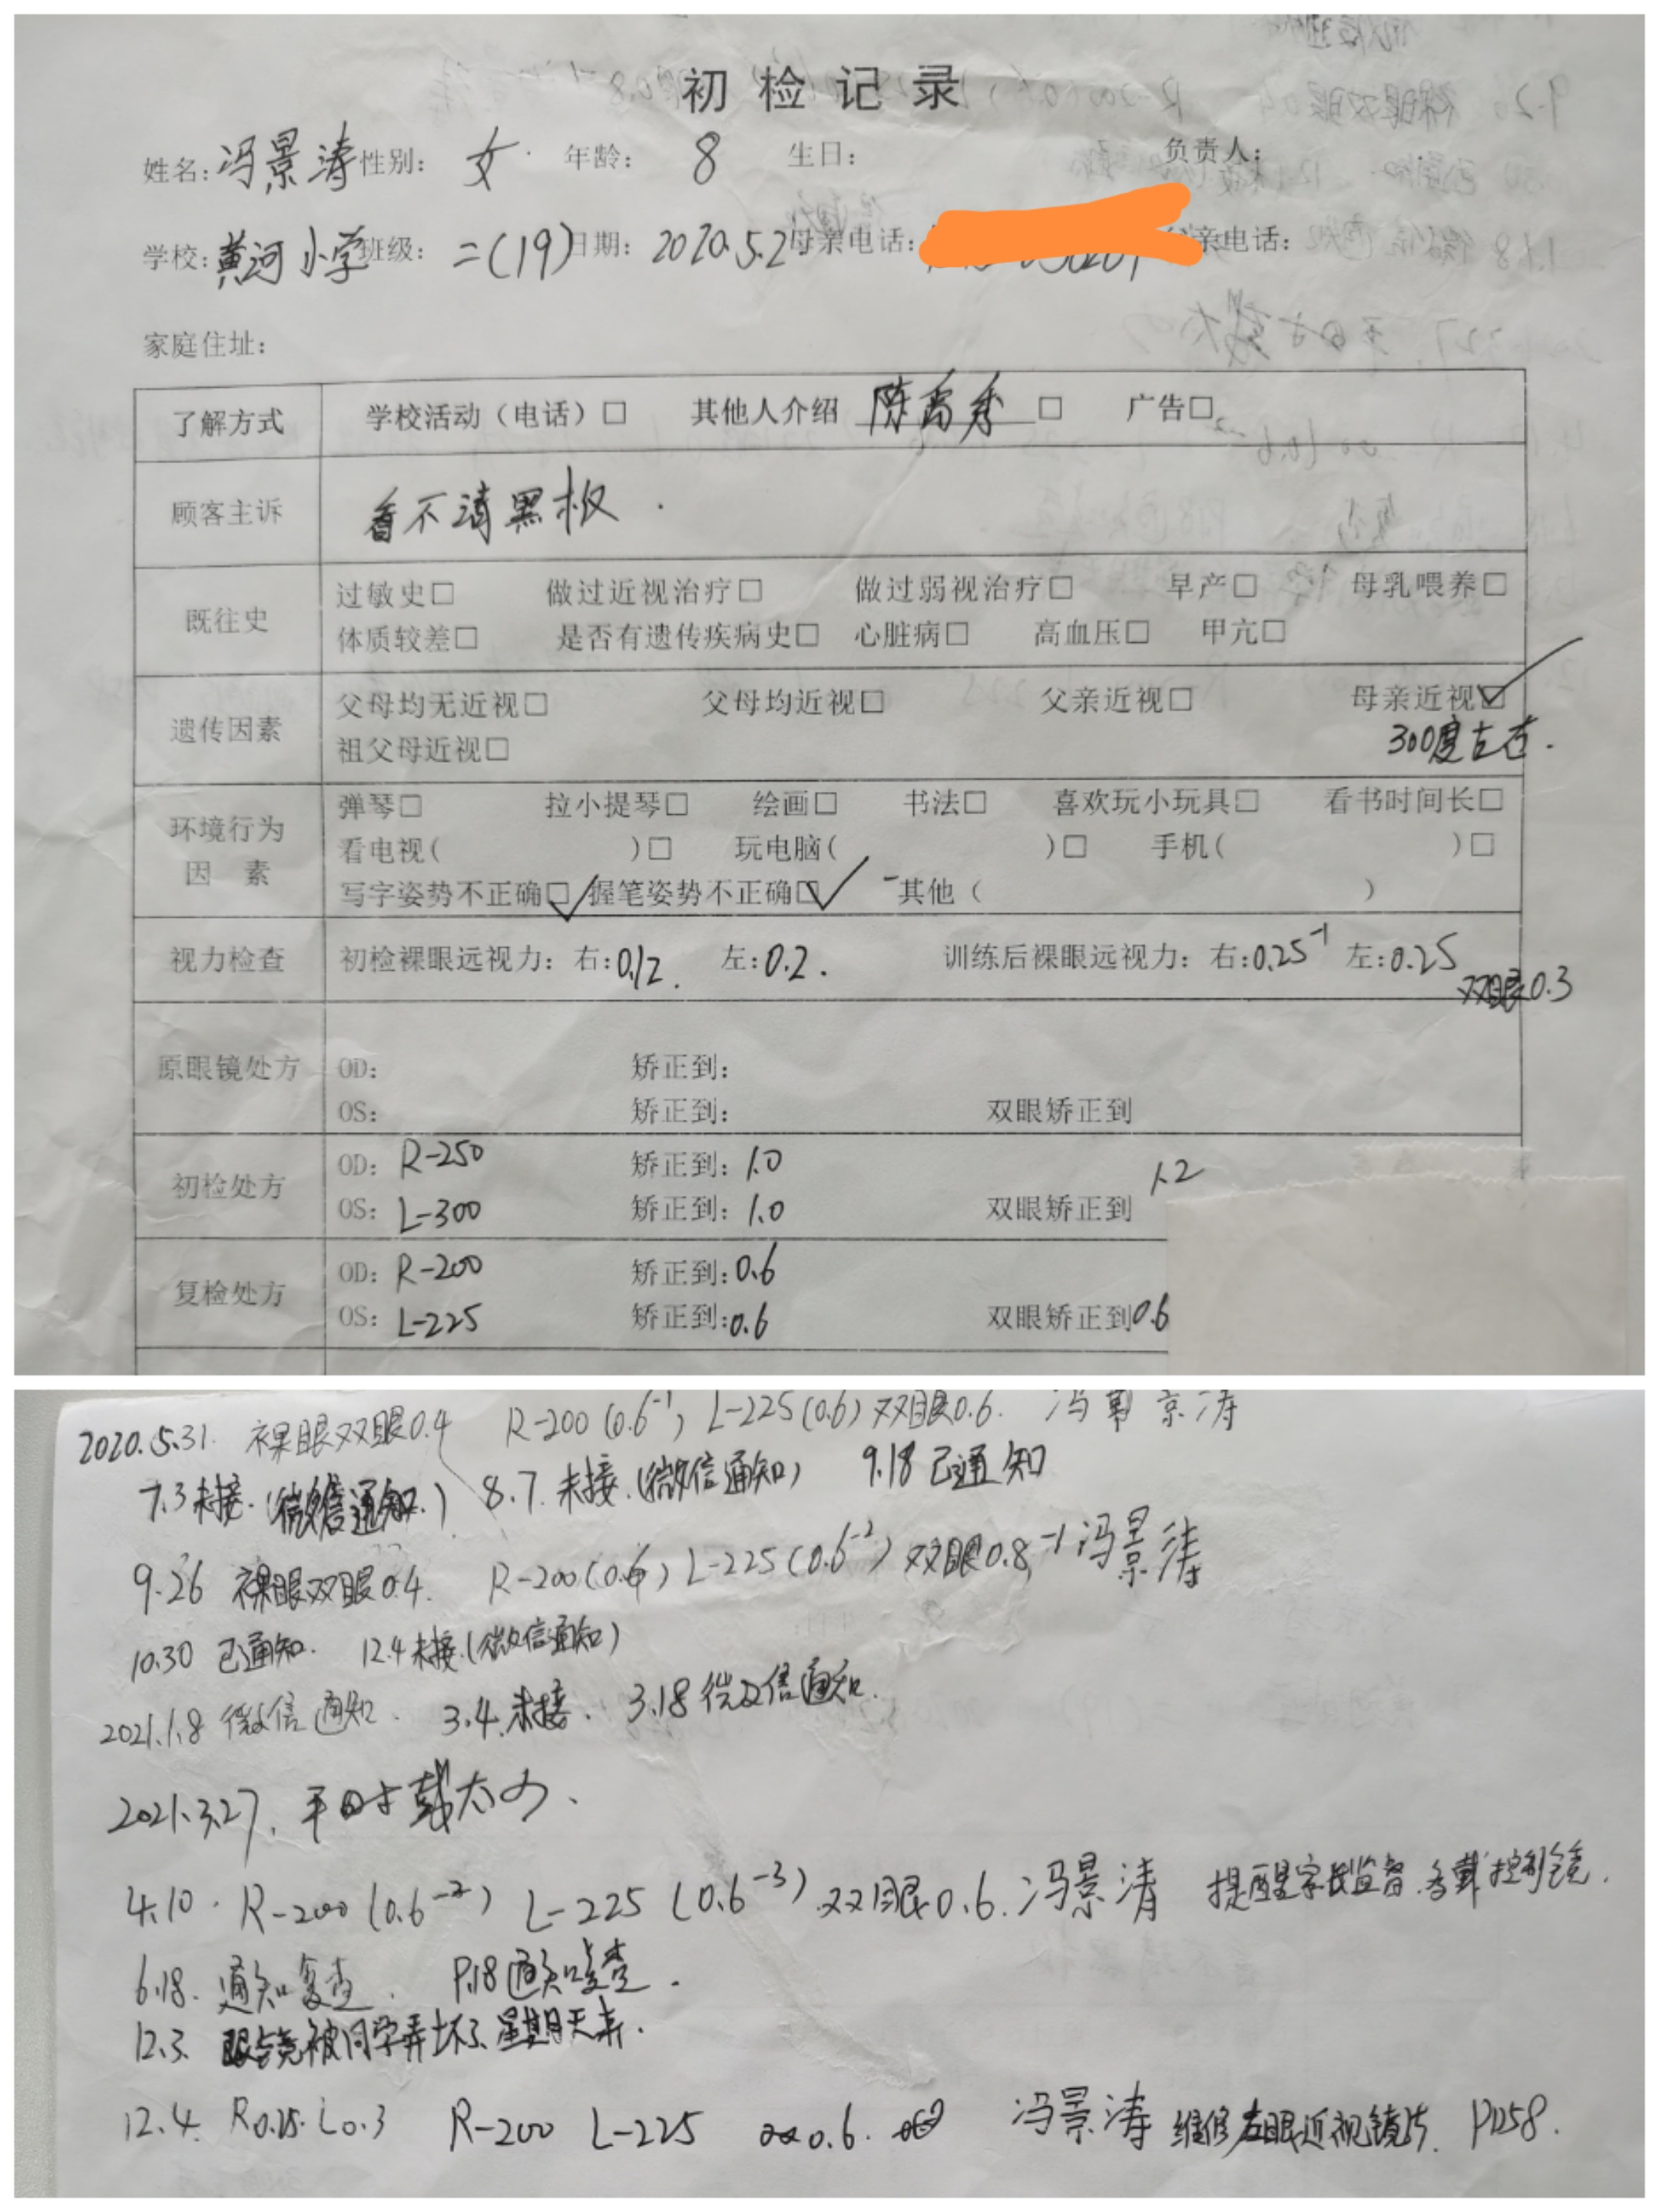 初检记录
姓名:冯景涛 性别: 女 年龄: 8 生日: 负责人:
学校:黄河小学 班级: 二(19) 日期: 2020.5.2 母亲电话: 父亲电话:
家庭住址:
了解方式 学校活动(电话)□ 其他人介绍 □ 广告□
顾客主诉 看不清黑板.
既往史 过敏史□ 做过近视治疗□ 做过弱视治疗□ 早产□ 母乳喂养□
体质较差□ 是否有遗传疾病史□ 心脏病□ 高血压□ 甲亢□
遗传因素 父母均无近视□ 父母均近视□ 父亲近视□ 母亲近视☑
祖父母近视□ 300度左右.
环境行为因素 弹琴□ 拉小提琴□ 绘画□ 书法□ 喜欢玩小玩具□ 看书时间长□
看电视( )□ 玩电脑( )□ 手机( )□
写字姿势不正确☑ 握笔姿势不正确☑ 其他( )
视力检查 初检裸眼远视力: 右:0.12. 左:0.2. 训练后裸眼远视力: 右:0.25⁻¹ 左:0.25
双眼0.3
原眼镜处方 OD: 矫正到:
OS: 矫正到: 双眼矫正到
初检处方 OD: R-250 矫正到: 1.0
OS: L-300 矫正到: 1.0 双眼矫正到 1.2
复检处方 OD: R-200 矫正到: 0.6
OS: L-225 矫正到: 0.6 双眼矫正到 0.6
2020.5.31. 裸眼双眼0.4 R-200(0.6⁻¹) L-225(0.6) 双眼0.6. 冯景涛
7.3未接.(微信通知.) 8.7.未接.(微信通知) 9.18已通知
9.26 裸眼双眼0.4. R-200(0.6) L-225(0.6⁻²) 双眼0.8⁻¹ 冯景涛
10.30 已通知. 12.4未接.(微信通知)
2021.1.8 微信通知. 3.4.未接. 3.18微信通知.
2021.3.27. 平时戴太少.
4.10. R-200(0.6⁻²) L-225(0.6⁻³) 双眼0.6. 冯景清 提醒家长监督.多戴控制镜.
6.18. 通知复查. 18通知复查.
12.3. 眼镜被同学弄坏了、星期天来.
12.4. R0.25. L0.3 R-200 L-225 0.6. 冯景涛 维修左眼近视镜片. PD58.